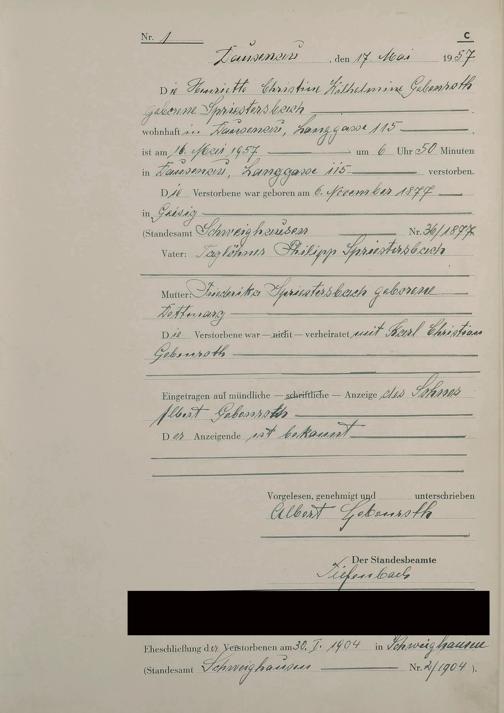 Nr. 1 C
Dausenau, den 17 Mai 1957
Die Henriette Christine Wilhelmine Gebenroth
geborene Spriestersbach
wohnhaft in Dausenau, Langgasse 115
ist am 16. Mai 1957 um 6 Uhr 50 Minuten
in Dausenau, Langgasse 115 verstorben.
Die Verstorbene war geboren am 6. November 1877
in Geisig
(Standesamt Schweighausen Nr. 36/1877
Vater: Taglöhner Philipp Spriestersbach
Mutter: Friederike Spriestersbach geborene
Die Verstorbene war — nicht — verheiratet mit Karl Christian
Gebenroth
Eingetragen auf mündliche — schriftliche — Anzeige des Sohnes
Albert Gebenroth
Der Anzeigende ist bekannt
Vorgelesen, genehmigt und unterschrieben
Albert Gebenroth
Der Standesbeamte
Tiefenbach
Eheschließung der Verstorbenen am 30. I. 1904 in Schweighausen
(Standesamt Schweighausen Nr. 2/1904 ).